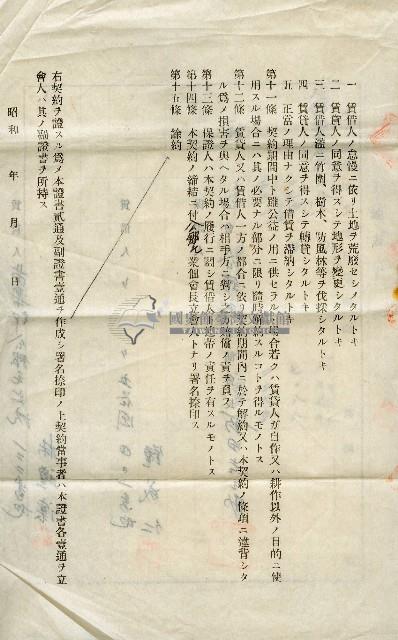 一 賃借人ノ怠慢ニ依リ土地ヲ荒廢セシメタルトキ
二 賃貸人ノ同意ヲ得スシテ地形ヲ變更シタルトキ
三 賃借人濫ニ竹圍、樹木、防風林等ヲ伐採シタルトキ
四 賃貸人ノ同意ヲ得スシテ轉貸シタルトキ
五 正當ノ理由ナクシテ借賃ヲ滯納シタルトキ
第十一條 契約期間中ト雖公益ノ用ニ供セラルル場合若クハ賃貸人ガ自作又ハ耕作以外ノ目的ニ使
用スル場合ニハ其ノ必要ナル部分ニ限リ隨時解約スルコトヲ得ルモノトス
第十二條 賃貸人又ハ賃借人一方ノ都合ニ依リ契約期間內ニ於テ解約又ハ本契約ノ條項ニ違背シタ
ル爲メ損害ヲ與ヘタル場合ハ相手方ニ對シ賠償ノ責ヲ負フ
第十三條 保證人ハ本契約ノ履行ニ關シ賃借人ト連帶ノ責任ヲ有スルモノトス
第十四條 本契約ノ締結ニ付 業佃會長立會人トナリ署名捺印ス
第十五條 除約
右契約ヲ證スル爲メ本證書貳通及副證書壹通ヲ作成シ署名捺印ノ上契約當事者ハ本證書各壹通ヲ立
會人ハ其ノ副證書ヲ所持ス
昭和 年 月 日